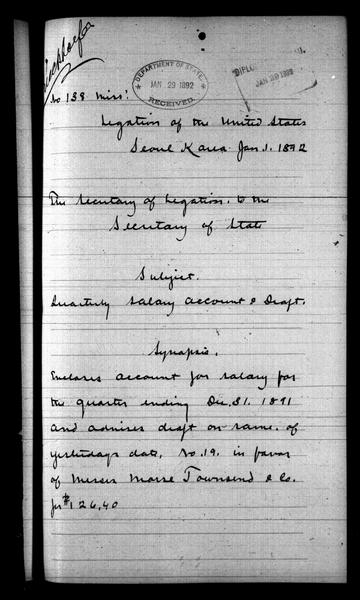 DEPARTMENT OF STATE,
JAN 29 1892
RECEIVED.
JAN 29 1892
No 138 Misc.
Legation of the United States
Seoul Korea Jan. 1. 1892
The Secretary of Legation, to the
Secretary of State
Subject.
Quarterly Salary account & Draft.
Synopsis.
Encloses account for salary for
the quarter ending Dec. 31. 1891
and advises draft on same, of
yesterday's date, No. 19. in favor
of Messrs Morse Townsend & Co.
for $126.40